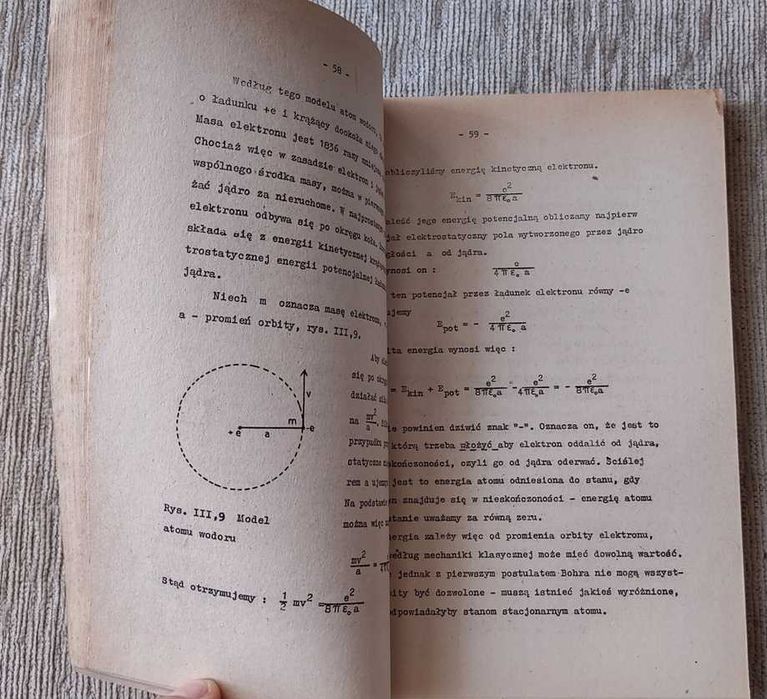 - 58 -
Według tego modelu atom wodoru,
o ładunku +e i krążący dookoła niego
Masa elektronu jest 1836 razy
Chociaż więc w zasadzie elektron i
wspólnego środka masy, można w
żać jądro za nieruchome. W
elektronu odbywa się po okręgu koła.
składa się z energii kinetycznej
trostatycznej energii potencjalnej
jądra.
Niech m oznacza masę elektronu,
a - promień orbity, rys. III,9.
Aby
się po
działać
na mv²/a
przypadku
statyczne
rem a
Na podstawie
można więc
v
m
+e a -e
Rys. III,9 Model
atomu wodoru
mv²/a =
Stąd otrzymujemy : 1/2 mv² = e²/8πε₀a
- 59 -
obliczyliśmy energię kinetyczną elektronu.
Ekin = e²/8πε₀a
jego energię potencjalną obliczamy najpierw
elektrostatyczny pola wytworzonego przez jądro
a od jądra.
on : e/4πε₀a
ten potencjał przez ładunek elektronu równy -e
Epot = - e²/4πε₀a
energia wynosi więc :
= Ekin + Epot = e²/8πε₀a - e²/4πε₀a = - e²/8πε₀a
powinien dziwić znak "-". Oznacza on, że jest to
którą trzeba włożyć aby elektron oddalić od jądra,
czyli go od jądra oderwać. Ściślej
jest to energia atomu odniesiona do stanu, gdy
znajduje się w nieskończoności - energię atomu
stanie uważamy za równą zeru.
zależy więc od promienia orbity elektronu,
według mechaniki klasycznej może mieć dowolną wartość.
jednak z pierwszym postulatem Bohra nie mogą wszyst-
być dozwolone - muszą istnieć jakieś wyróżnione,
stanom stacjonarnym atomu.